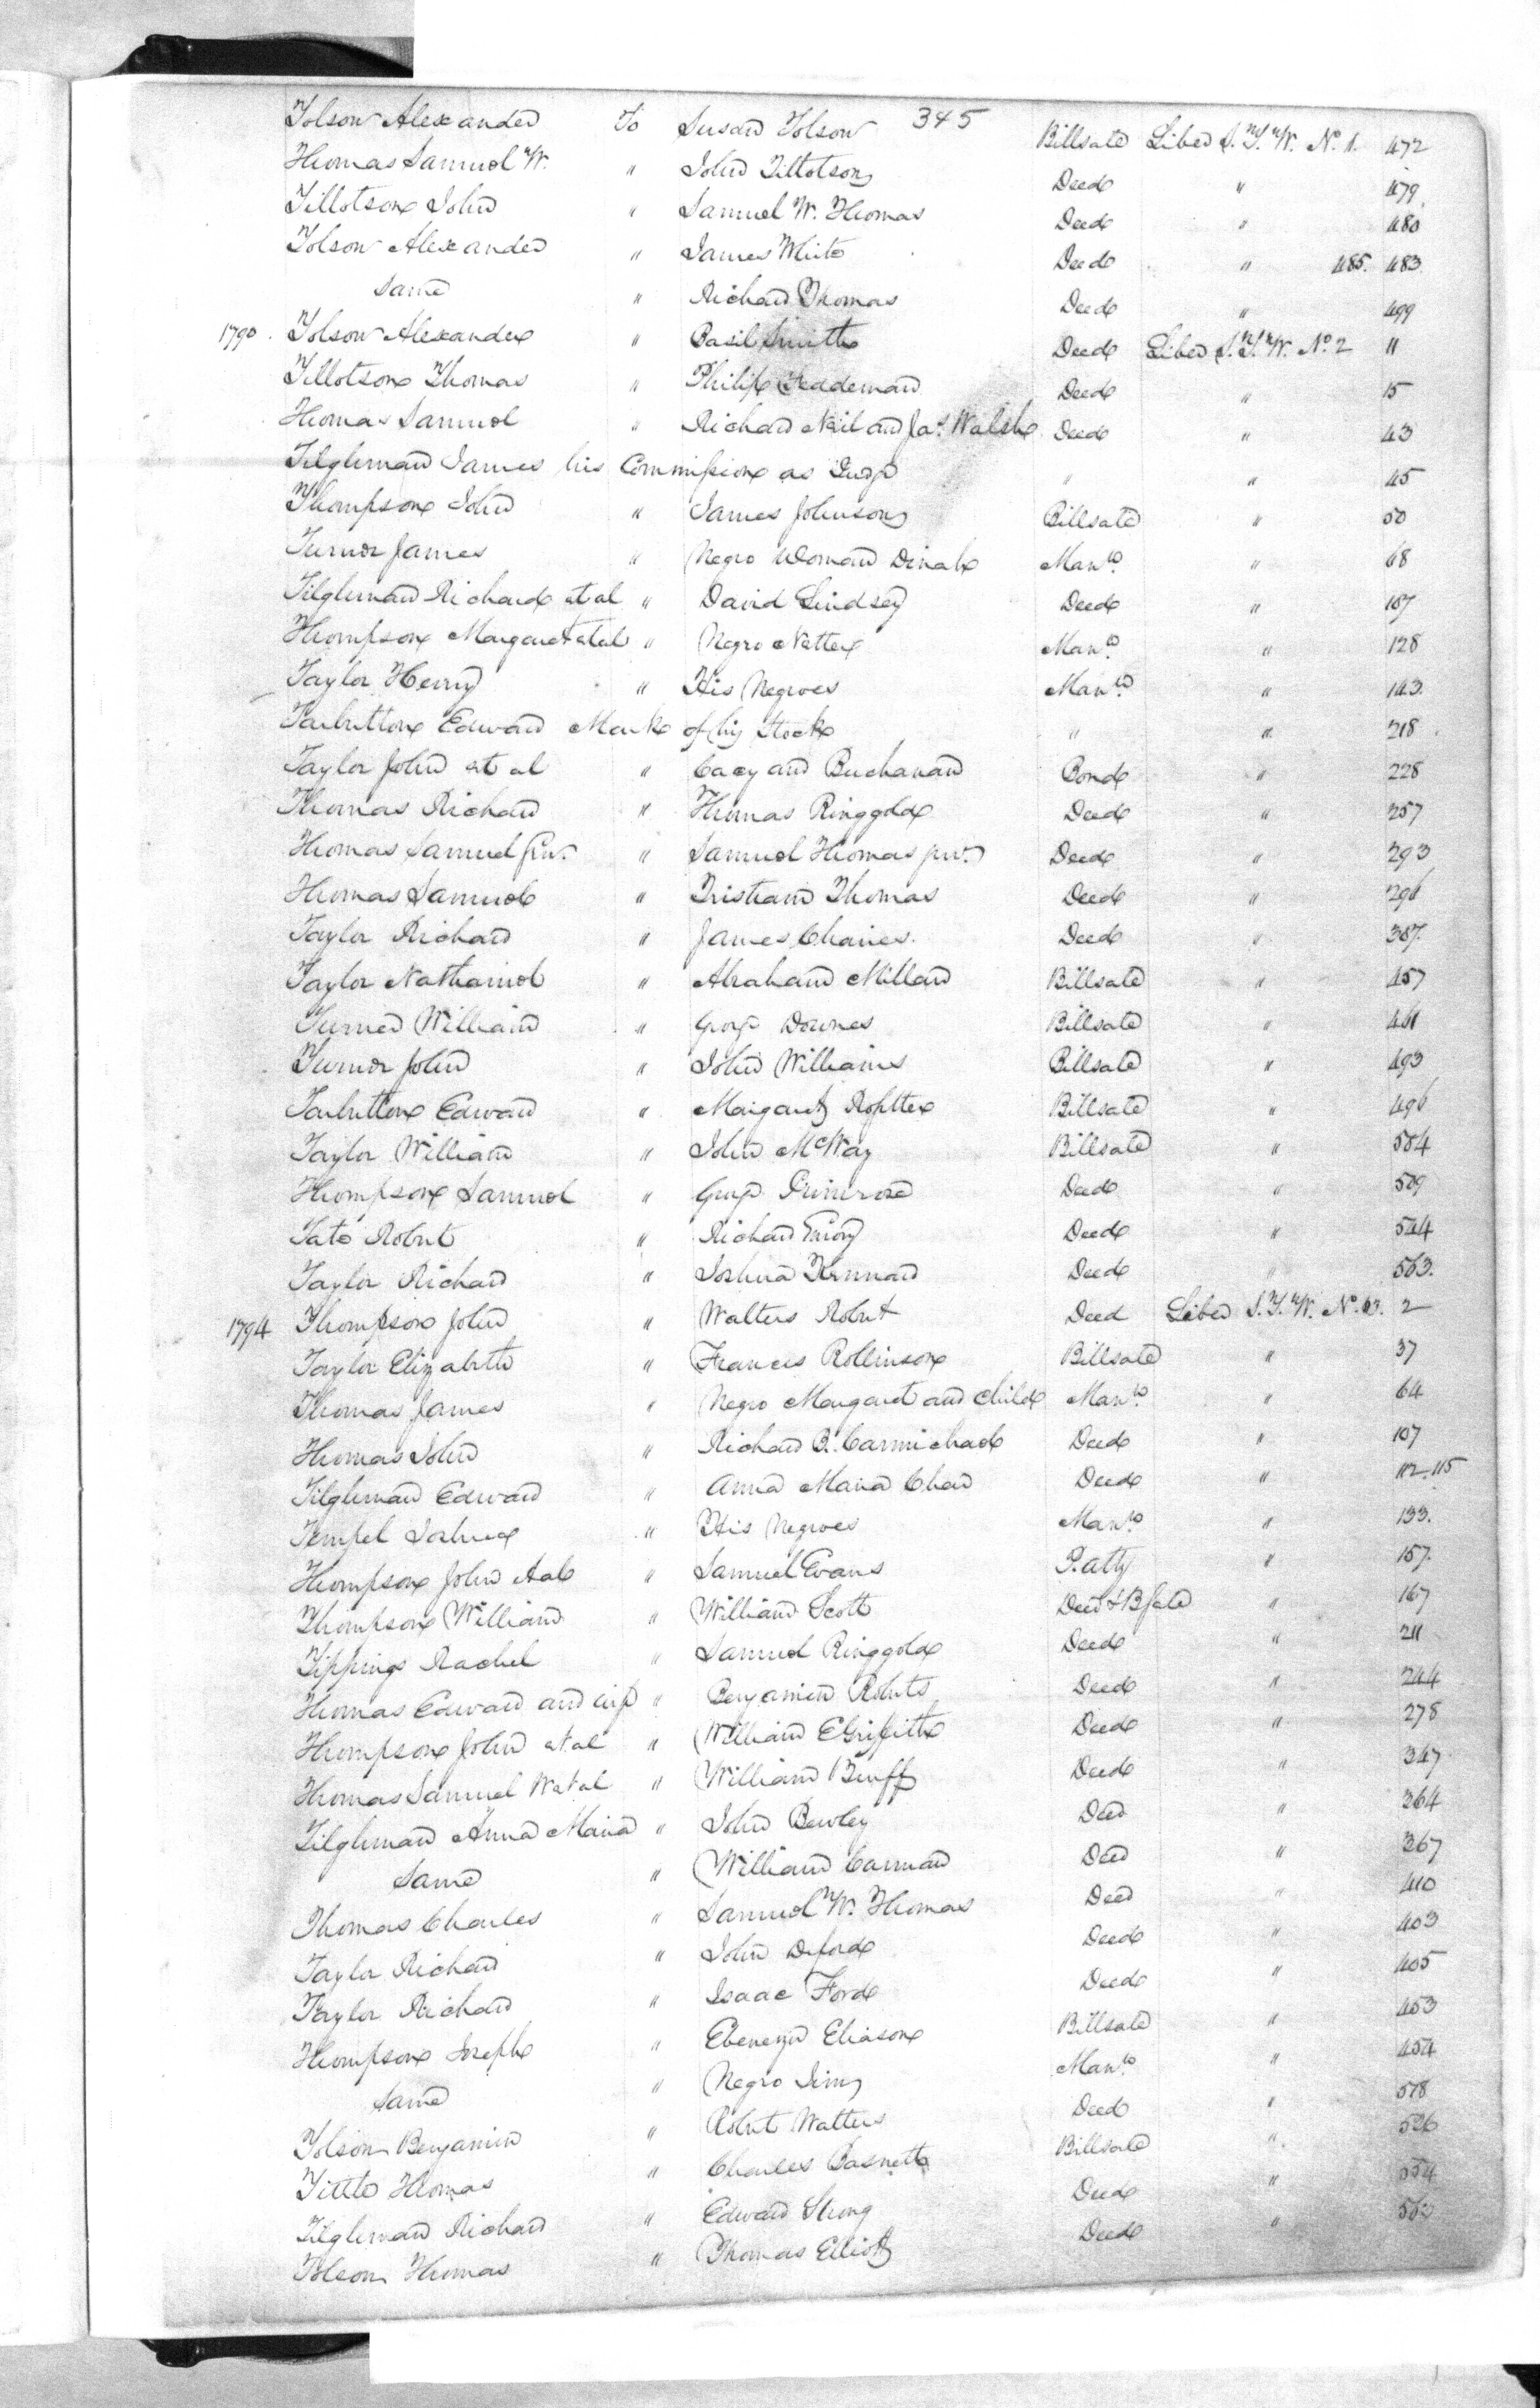 345
Tolson Alexander To Susan Tolson Billsale Liber S.T.W. No. 1. 472
Thomas Samuel W. " John Tillotson Deed " 479
Tillotson John " Samuel W. Thomas Deed " 480
Tolson Alexander " James White Deed " 485. 483
Same " Richard Thomas Deed " 499
1790. Tolson Alexander " Basil Smith Deed Liber S.T.W. No. 2 11
Tillotson Thomas " Philip Feddeman Deed " 15
Thomas Samuel " Richard Neil and Jas. Walsh Deed " 43
Tilghman James his Commission as Judge " " 45
Thompson John " James Johnson Billsale " 50
Turner James " Negro Woman Dinah Man.n " 68
Tilghman Richard et al " David Lindsey Deed " 107
Thompson Margaret et al " Negro Man.n " 128
Taylor Henry " His Negroes Man.n " 143.
Tarbutton Edward Mark of his Stock " " 218
Taylor John et al " Cacy and Buchanan Bond " 228
Thomas Richard " Thomas Ringgold Deed " 257
Thomas Samuel Jun. " Samuel Thomas jun. Deed " 293
Thomas Samuel " Tristram Thomas Deed " 296
Taylor Richard " James Chaires. Deed " 387.
Taylor Nathaniel " Abraham Millard Billsale " 457
Turner William " George Downes Billsale " 461
Turner John " John Williams Billsale " 493
Tarbutton Edward " Margaret Billsale " 496
Taylor William " John McWay Billsale " 504
Thompson Samuel " George Primrose Deed " 509
Tate Robert " Richard Emory Deed " 544
Taylor Richard " Joshua Kennard Deed " 563.
1794 Thompson John " Walters Robert Deed Liber S.T.W. No. 3. 2
Taylor Elizabeth " Frances Rollinson Billsale " 37
Thomas James " Negro Margaret and Child Man.n " 64
Thomas John " Richard B. Carmichael Deed " 107
Tilghman Edward " Anna Maria Chew Deed " 112.115
Tempel Joshua " His Negroes Man.n " 133.
Thompson John et al " Samuel Evans P. atty " 157.
Thompson William " William Scott Deed & B sale " 167
Tippings Rachel " Samuel Ringgold Deed " 211
Thomas Edward and wife " Benjamin Roberts Deed " 244
Thompson John et al " William E Griffith Deed " 278
Thomas Samuel W et al " William Bruff Deed " 347
Tilghman Anna Maria " John Bewley Deed " 364
Same " William Carman Deed " 367
Thomas Charles " Samuel W. Thomas Deed " 410
Taylor Richard " John Deford Deed " 403
Taylor Richard " Isaac Ford Deed " 405
Thompson Joseph " Ebenezer Eliason Billsale " 453
Same " Negro Jim Man.n " 454
Tolson Benjamin " Robert Walters Deed " 518
Tittle Thomas " Charles Basnett Billsale " 526
Tilghman Richard " Edward Strong Deed " 554
Tolson Thomas " Thomas Elliott Deed "